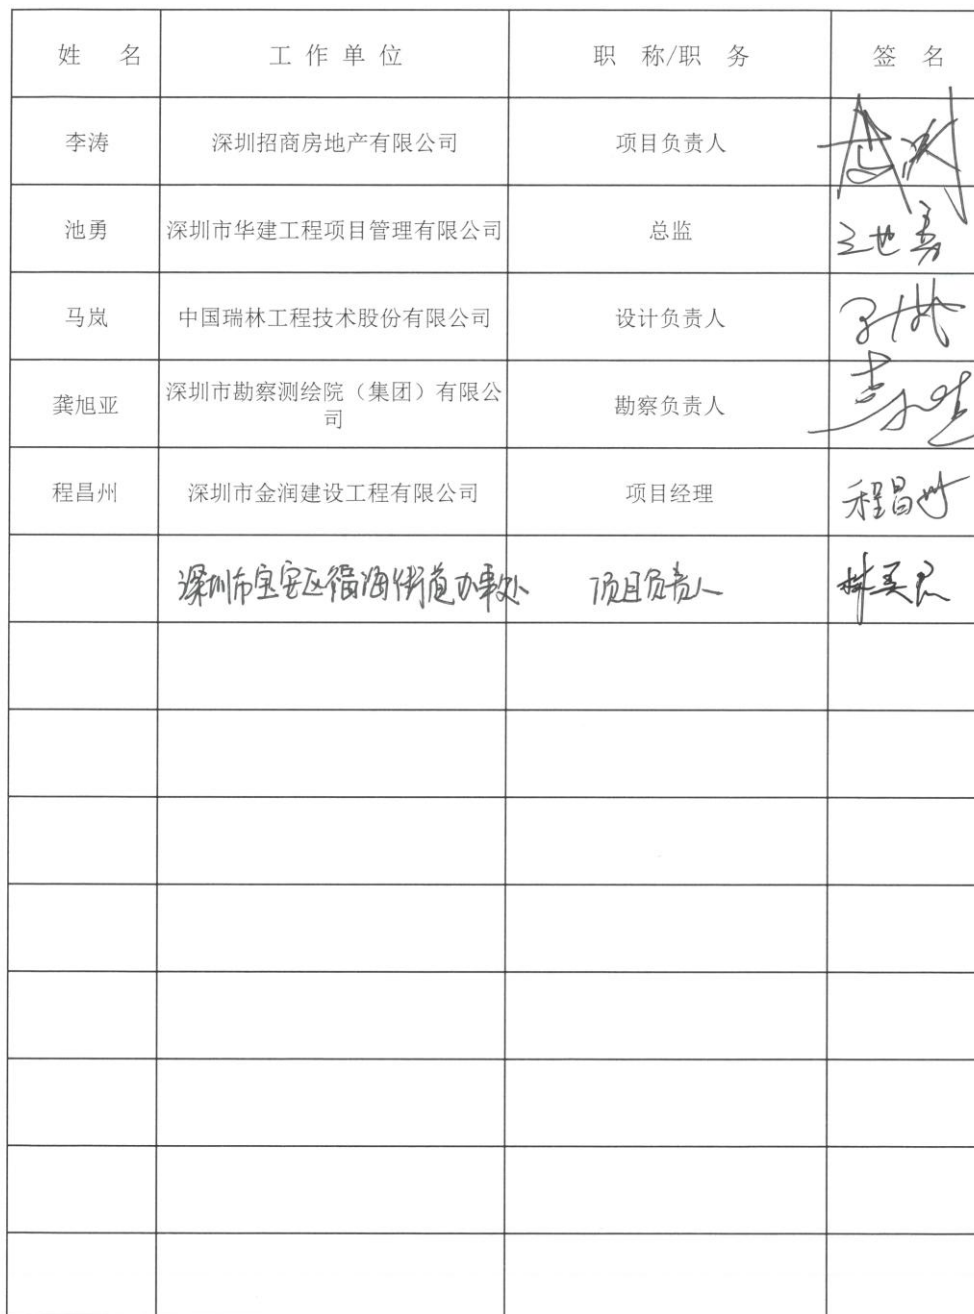 姓 名 工作单位 职 称/职 务 签 名
李涛 深圳招商房地产有限公司 项目负责人
池勇 深圳市华建工程项目管理有限公司 总监 池勇
马岚 中国瑞林工程技术股份有限公司 设计负责人
龚旭亚 深圳市勘察测绘院（集团）有限公
司 勘察负责人
程昌州 深圳市金润建设工程有限公司 项目经理 程昌州
深圳市宝安区福海街道办事处 项目负责人